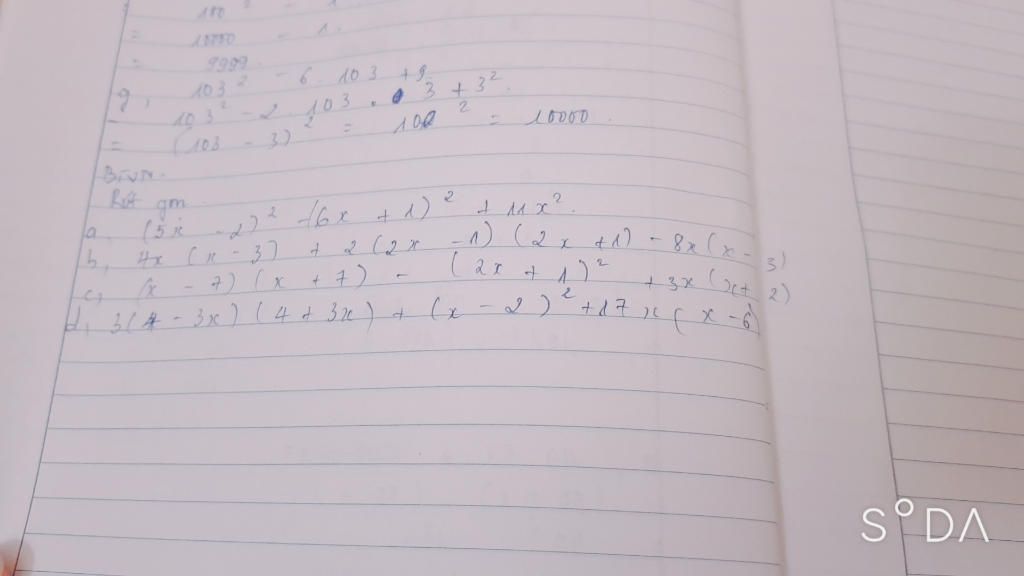 100² - 1
= 10000 - 1.
= 9999.
g, 103² - 6. 103 + 9
= 103² - 2. 103 . 3 + 3².
= (103 - 3)² = 100² = 10000.
Rút gọn
a. (5x - 2)² - (6x + 1)² + 11x².
b, 4x (x - 3) + 2(2x - 1) (2x + 1) - 8x(x - 3)
c, (x - 7) (x + 7) - (2x + 1)² + 3x(x + 2)
d, 3(4 - 3x) (4 + 3x) + (x - 2)² + 17x(x - 6)
S°DA